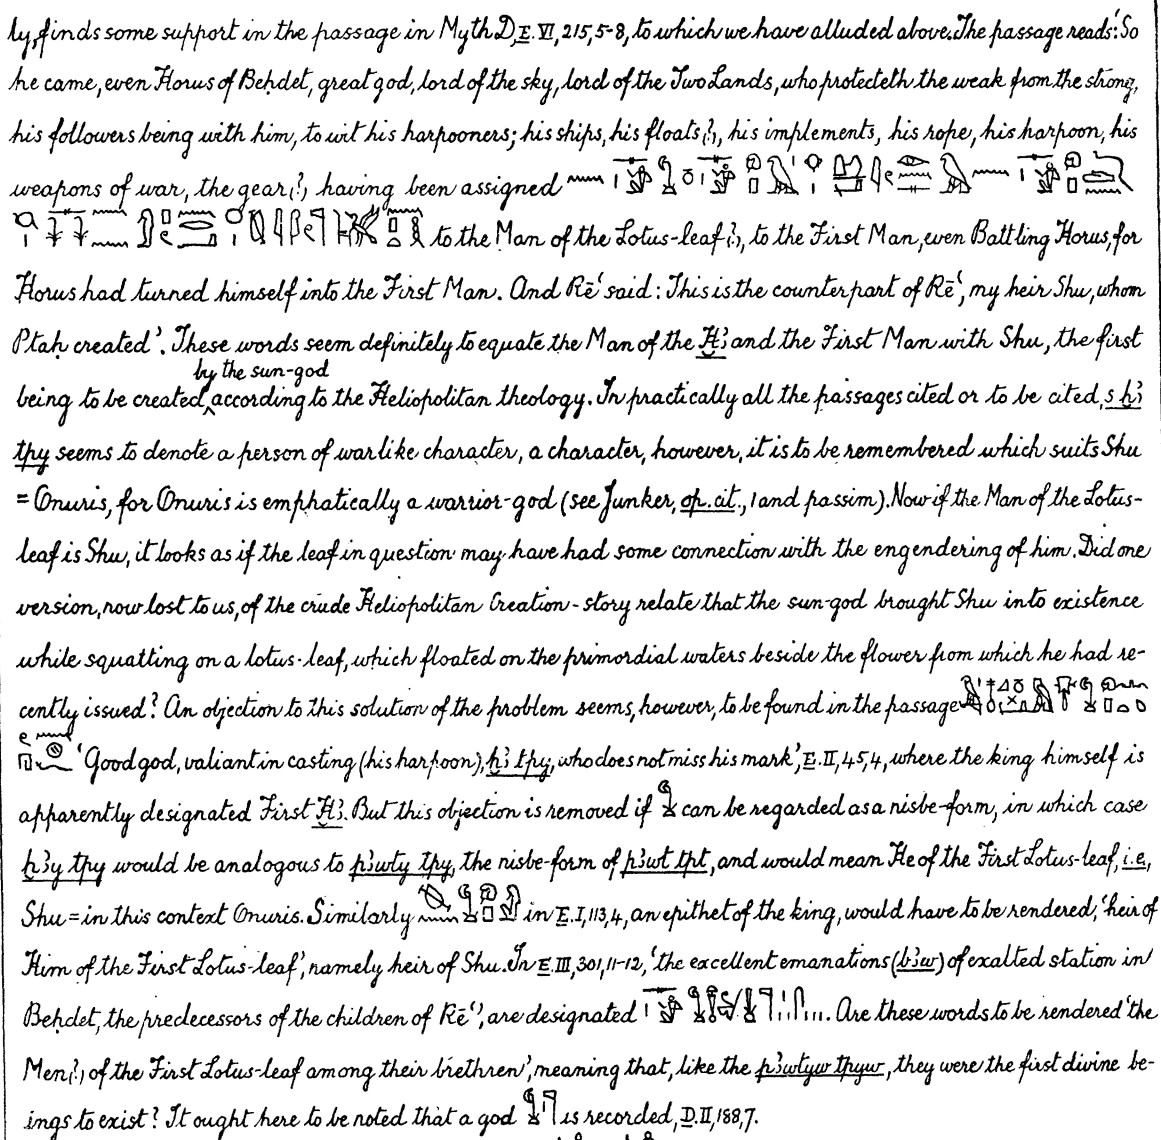 ly, finds some support in the passage in Myth D, E. VI, 215, 5-8, to which we have alluded above. The passage reads: 'So
he came, even Horus of Beḥdet, great god, lord of the sky, lord of the Two Lands, who protecteth the weak from the strong,
his followers being with him, to wit his harpooners; his ships, his floats(?), his implements, his rope, his harpoon, his
weapons of war, the gear(?), having been assigned
to the Man of the Lotus-leaf(?), to the First Man, even Battling Horus, for
Horus had turned himself into the First Man. And Rēʿ said: This is the counterpart of Rēʿ, my heir Shu, whom
Ptaḥ created'. These words seem definitely to equate the Man of the Ḫꜣ and the First Man with Shu, the first
by the sun-god
being to be created, according to the Heliopolitan theology. In practically all the passages cited or to be cited, s ḫꜣ
tpy seems to denote a person of warlike character, a character, however, it is to be remembered which suits Shu
= Onuris, for Onuris is emphatically a warrior-god (see Junker, op. cit., 1 and passim). Now if the Man of the Lotus-
leaf is Shu, it looks as if the leaf in question may have had some connection with the engendering of him. Did one
version, now lost to us, of the crude Heliopolitan Creation-story relate that the sun-god brought Shu into existence
while squatting on a lotus-leaf, which floated on the primordial waters beside the flower from which he had re-
cently issued? An objection to this solution of the problem seems, however, to be found in the passage
'Good god, valiant in casting (his harpoon), ḫꜣ tpy, who does not miss his mark', E. II, 45, 4, where the king himself is
apparently designated First Ḫꜣ. But this objection is removed if can be regarded as a nisbe-form, in which case
ḫꜣy tpy would be analogous to pꜣwty tpy, the nisbe-form of pꜣwt tpt, and would mean He of the First Lotus-leaf, i.e.,
Shu = in this context Onuris. Similarly in E. I, 113, 4, an epithet of the king, would have to be rendered, 'heir of
Him of the First Lotus-leaf', namely heir of Shu. In E. III, 301, 11-12, 'the excellent emanations (bꜣw) of exalted station in
Beḥdet, the predecessors of the children of Rēʿ', are designated . Are these words to be rendered 'the
Men(?) of the First Lotus-leaf among their brethren', meaning that, like the pꜣwtyw tpyw, they were the first divine be-
ings to exist? It ought here to be noted that a god is recorded, D. II, 188, 7.